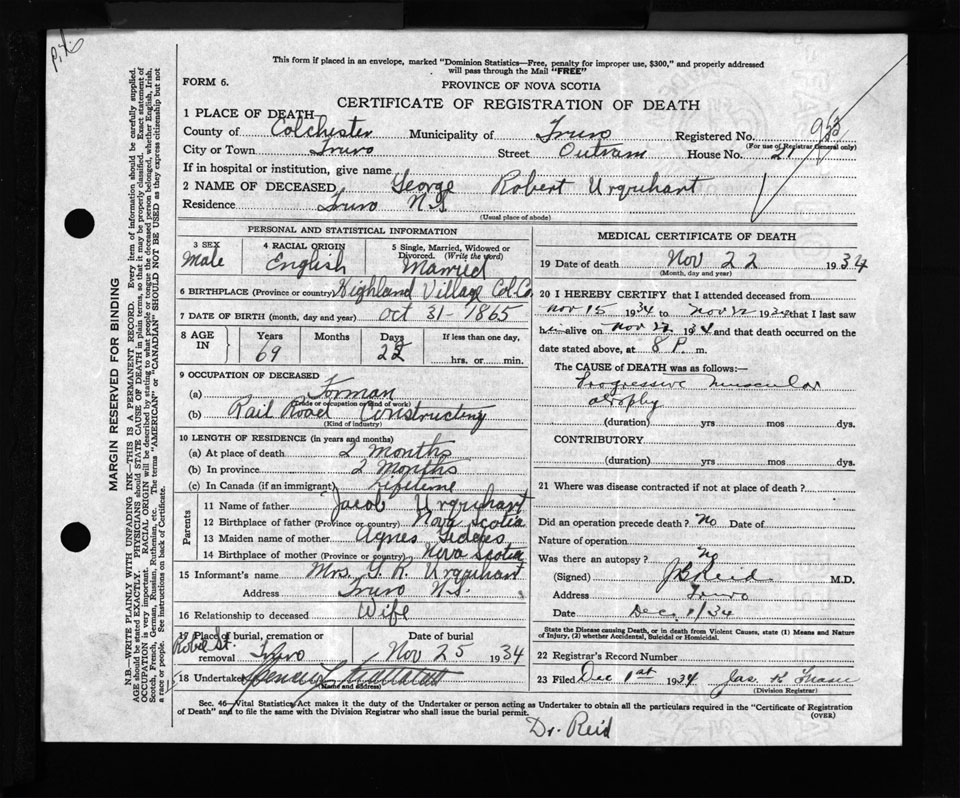 This form if placed in an envelope, marked "Dominion Statistics—Free, penalty for improper use, $300," and properly addressed
will pass through the Mail "FREE"
FORM 6.
PROVINCE OF NOVA SCOTIA
CERTIFICATE OF REGISTRATION OF DEATH
1 PLACE OF DEATH
County of Colchester Municipality of Truro Registered No. 923
(For use of Registrar General only)
City or Town Truro Street Outram House No. 21
If in hospital or institution, give name
2 NAME OF DECEASED George Robert Urquhart
Residence Truro N.S.
(Usual place of abode)
MARGIN RESERVED FOR BINDING
N.B.—WRITE PLAINLY WITH UNFADING INK—THIS IS A PERMANENT RECORD. Every item of information should be carefully supplied.
AGE should be stated EXACTLY. PHYSICIANS should STATE CAUSE OF DEATH in plain terms, so that it may be properly classified. Exact statement of
OCCUPATION is very important. RACIAL ORIGIN will be described by stating to what people or tongue the deceased person belonged, whether English, Irish,
Scotch, French, German, Russian, Ruthenian, etc. The terms "AMERICAN" or "CANADIAN" SHOULD NOT BE USED as they express citizenship but not
a race or people. See instructions on back of Certificate.
PERSONAL AND STATISTICAL INFORMATION
3 SEX
Male
4 RACIAL ORIGIN
English
5 Single, Married, Widowed or
Divorced. (Write the word)
Married
6 BIRTHPLACE (Province or country) Highland Village Col. Co.
7 DATE OF BIRTH (month, day and year) Oct 31 - 1865
8 AGE IN
Years 69
Months
Days 22
If less than one day,
hrs. or min.
9 OCCUPATION OF DECEASED
(a) Forman
(Trade or occupation or kind of work)
(b) Rail Road Constructing
(Kind of industry)
10 LENGTH OF RESIDENCE (in years and months)
(a) At place of death 2 months
(b) In province 2 months
(c) In Canada (if an immigrant) Lifetime
Parents
11 Name of father Jacob Urquhart
12 Birthplace of father (Province or country) Nova Scotia
13 Maiden name of mother Agnes Geddes
14 Birthplace of mother (Province or country) Nova Scotia
15 Informant's name Mrs. G. R. Urquhart
Address Truro N.S.
16 Relationship to deceased Wife
17 Place of burial, cremation or
removal Robie St. Truro
Date of burial
Nov 25 1934
18 Undertaker
(Name and address)
MEDICAL CERTIFICATE OF DEATH
19 Date of death Nov 22 1934
(Month, day and year)
20 I HEREBY CERTIFY that I attended deceased from
Nov 15 1934 to Nov 22 1934 that I last saw
h alive on Nov 22 1934 and that death occurred on the
date stated above, at 8 P. m.
The CAUSE of DEATH was as follows:—
Progressive muscular
atrophy
(duration) yrs mos dys.
CONTRIBUTORY
(duration) yrs. mos. dys.
21 Where was disease contracted if not at place of death?
Did an operation precede death? No Date of
Nature of operation
Was there an autopsy? No
(Signed) J B Reid M.D.
Address Truro
Date Dec 1/34
State the Disease causing Death, or in death from Violent Causes, state (1) Means and Nature
of Injury, (2) whether Accidental, Suicidal or Homicidal.
22 Registrar's Record Number
23 Filed Dec 1st 1934 Jas. K Fraser
(Division Registrar)
Sec. 46—Vital Statistics Act makes it the duty of the Undertaker or person acting as Undertaker to obtain all the particulars required in the "Certificate of Registration
of Death" and to file the same with the Division Registrar who shall issue the burial permit.
(OVER)
Dr. Reid